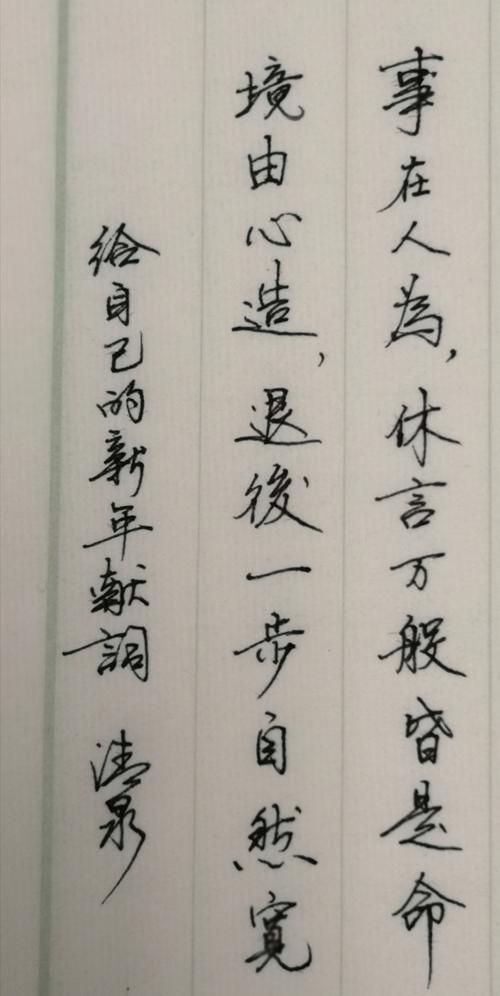 事在人為，休言万般皆是命
境由心造，退後一步自然寬
给自己的新年献詞 清泉